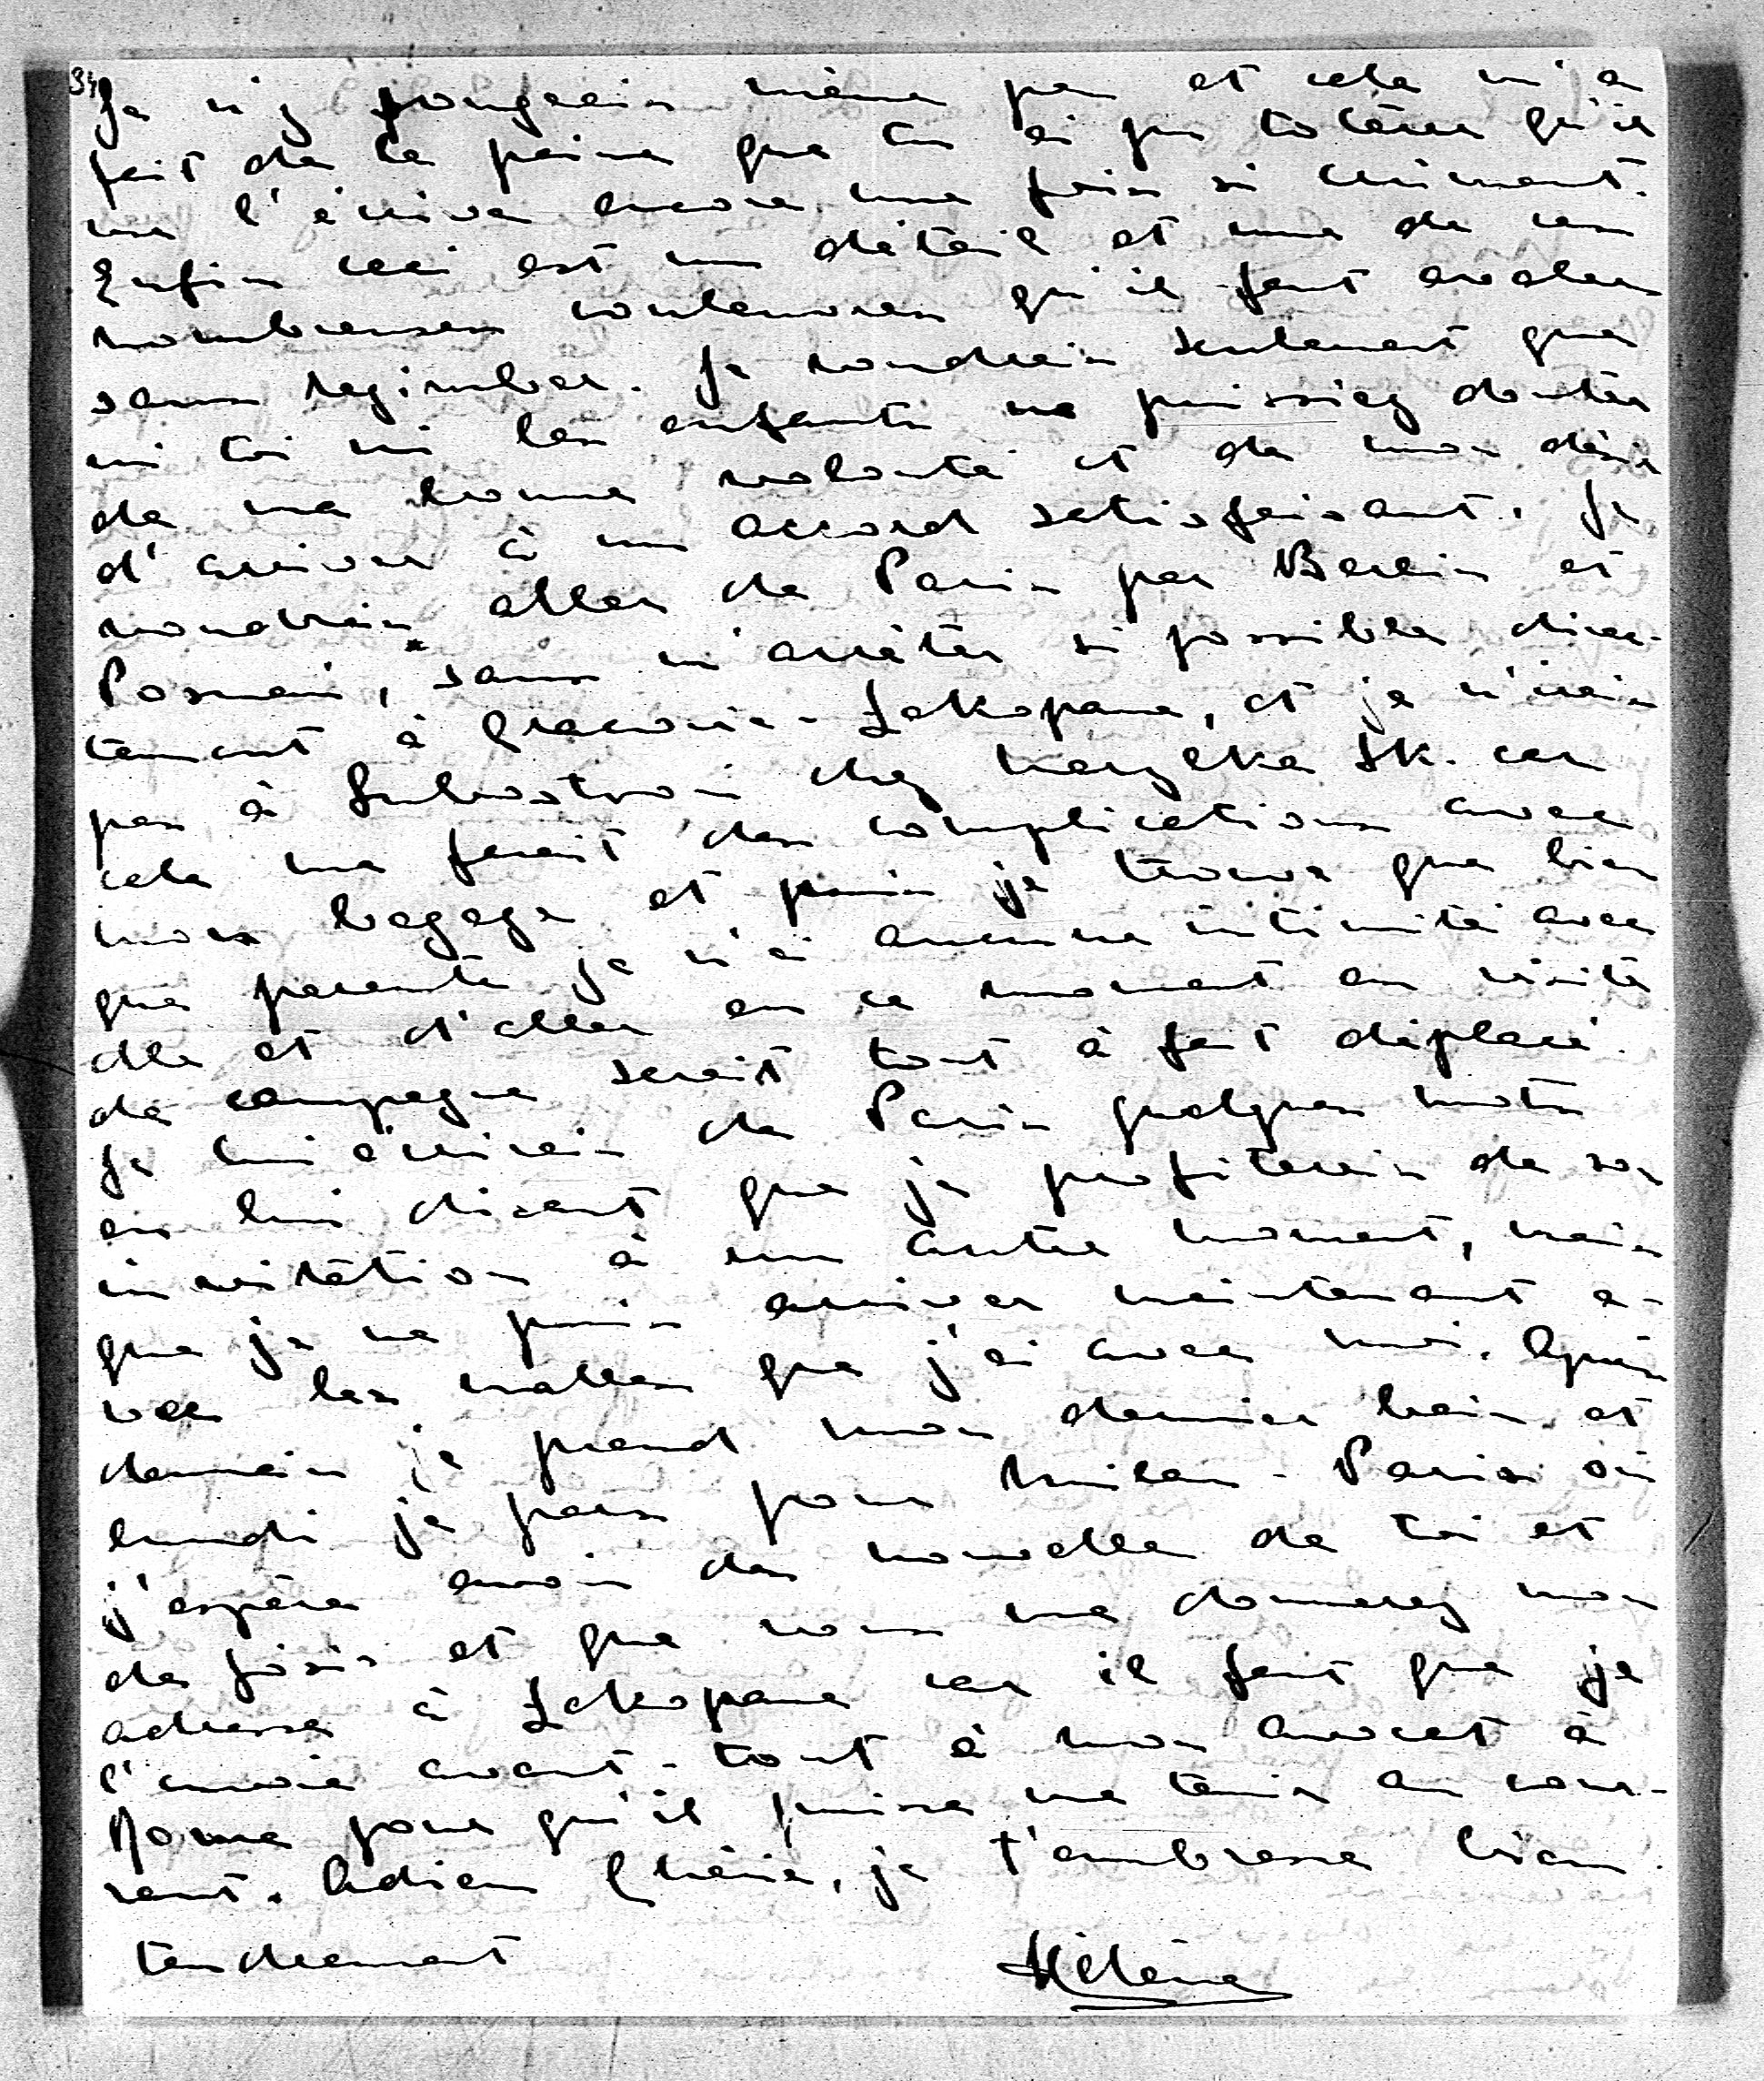 34
Je n'y songeais même pas et cela m'a
fait de la peine que tu ai pu tolérer qu'il
me l'écrive encore une fois si crûment.
Enfin ceci est un détail et une de ces
nombreuses couleuvres qu'il faut avaler
sans regimber. Je voudrais seulement que
ni toi ni les enfants ne puissiez douter
de ma bonne volonté et de mon désir
d'arriver à un accord satisfaisant. Je
voudrais aller de Paris par Berlin et
Posnań, sans m'arrêter si possible direc-
tement à Cracovie-Zakopane, et je n'irais
pas à chez Sk. car
cela me ferait des complications avec
mon bagage et puis je trouve que bien
que parente je n'ai aucune intimité avec
elle et d'aller en ce moment en visite
de campagne serait tout à fait déplacé.
Je lui écrirais de Paris quelques mots
en lui disant que je profiterais de son
invitation à un autre moment, mais
que je ne puis arriver maintenant a-
vec les malles que j'ai avec moi. Après
demain je prend mon dernier bain et
lundi je pars pour Milan-Paris où
j'espère avoir des nouvelles de toi et
de et que vous me donnerez mon
adresse à Zakopane car il faut que je
l'envoie avant-tout à mon avocat à
Rome pour qu'il puisse me tenir au cou-
rant. Adieu Chérie, je t'embrasse bien
tendrement Hélène